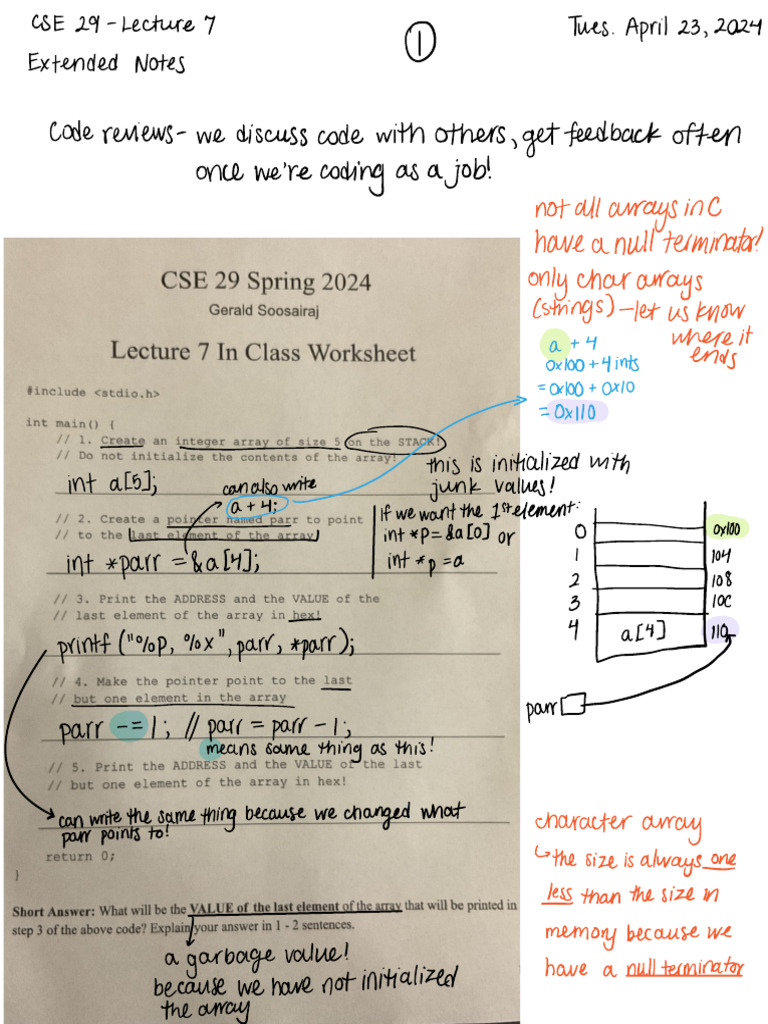 CSE 29 - Lecture 7
Extended Notes
1
Tues. April 23, 2024
Code reviews - we discuss code with others, get feedback often
once we're coding as a job!
not all arrays in C
have a null terminator!
only char arrays
(strings) - let us know
where it
ends
a + 4
0x100 + 4 ints
= 0x100 + 0x10
= 0x110
CSE 29 Spring 2024
Gerald Soosairaj
Lecture 7 In Class Worksheet
#include <stdio.h>
int main() {
// 1. Create an integer array of size 5 on the STACK!
// Do not initialize the contents of the array!
int a[5];
this is initialized with
junk values!
can also write
a + 4;
// 2. Create a pointer named parr to point
// to the last element of the array
int *parr = &a[4];
If we want the 1st element:
int *p = &a[0] or
int *p = a
0
1
2
3
4
a[4]
0x100
104
108
10C
110
parr
// 3. Print the ADDRESS and the VALUE of the
// last element of the array in hex!
printf ("%p, %x", parr, *parr);
// 4. Make the pointer point to the last
// but one element in the array
parr -= 1; // parr = parr - 1;
means same thing as this!
// 5. Print the ADDRESS and the VALUE of the last
// but one element of the array in hex!
can write the same thing because we changed what
parr points to!
return 0;
}
character array
↳ the size is always one
less than the size in
memory because we
have a null terminator
Short Answer: What will be the VALUE of the last element of the array that will be printed in
step 3 of the above code? Explain your answer in 1 - 2 sentences.
a garbage value!
because we have not initialized
the array